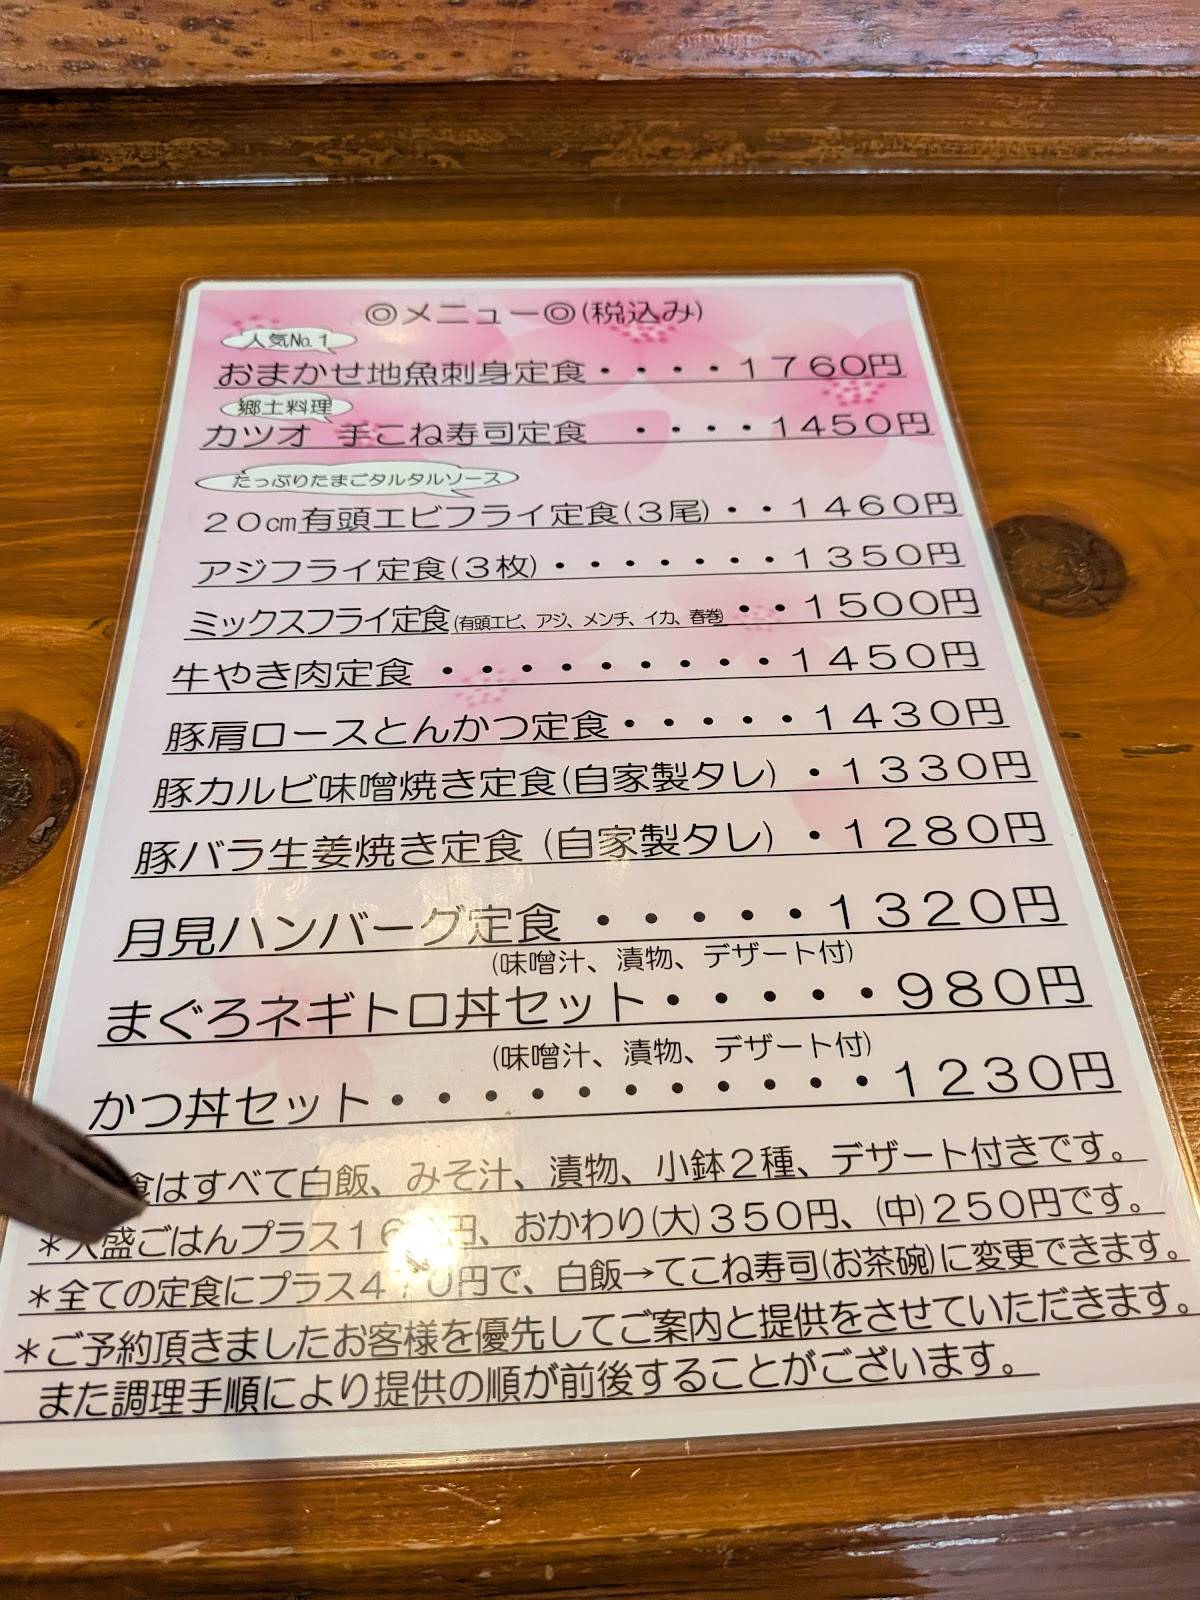 ◎メニュー◎(税込み)
人気No.1
おまかせ地魚刺身定食・・・・1760円
郷土料理
カツオ 手こね寿司定食 ・・・・1450円
たっぷりたまごタルタルソース
20cm有頭エビフライ定食(3尾)・・1460円
アジフライ定食(3枚)・・・・・・・1350円
ミックスフライ定食(有頭エビ、アジ、メンチ、イカ、春巻)・・1500円
牛やき肉定食 ・・・・・・・・・1450円
豚肩ロースとんかつ定食・・・・・1430円
豚カルビ味噌焼き定食(自家製タレ) ・1330円
豚バラ生姜焼き定食 (自家製タレ) ・1280円
月見ハンバーグ定食 ・・・・・1320円
(味噌汁、漬物、デザート付)
まぐろネギトロ丼セット・・・・・980円
(味噌汁、漬物、デザート付)
かつ丼セット・・・・・・・・・・・1230円
食はすべて白飯、みそ汁、漬物、小鉢2種、デザート付きです。
*大盛ごはんプラス 円、おかわり(大)350円、(中)250円です。
*全ての定食にプラス 円で、白飯→てこね寿司(お茶碗)に変更できます。
*ご予約頂きましたお客様を優先してご案内と提供をさせていただきます。
また調理手順により提供の順が前後することがございます。